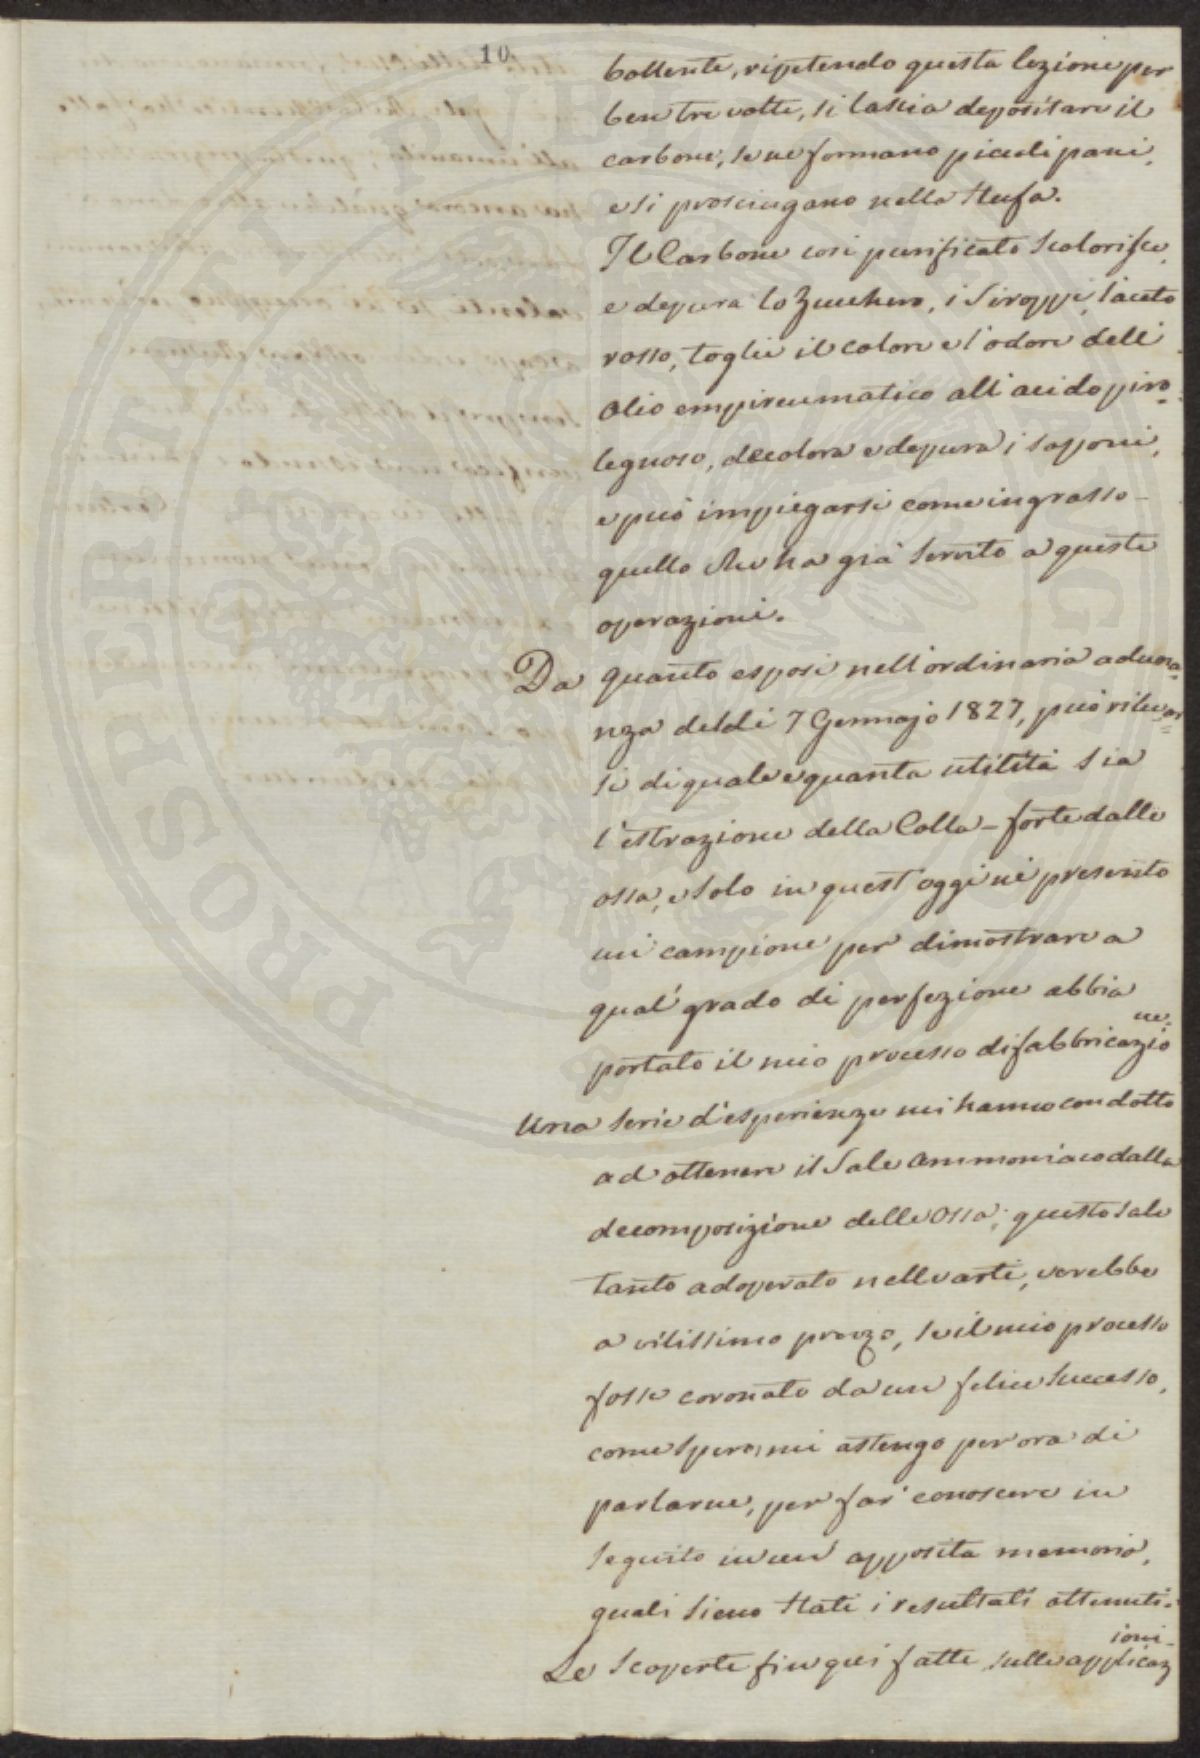 10.
bollente, ripetendo questa lozione per
ben tre volte, si lascia depositare il
carbone, se ne formano piccoli pani,
e si prosciugano nella stufa.
Il Carbone così purificato scolorisce,
e depura lo Zucchero, i Siroppi, l'aceto
rosso, toglie il colore e l'odore dell'
olio empireumatico all'acido piro=
legnoso, decolora e depura i saponi,
e può impiegarsi come ingrasso
quello che ha già servito a queste
operazioni.
Da quanto esposi nell'ordinaria aduna=
nza del dì 7 Gennajo 1827, può rilevar=
si di quale e quanta utilità sia
l'estrazione della Colla-forte dalle
ossa, e solo in quest'oggi ne presento
un campione per dimostrare a
qual grado di perfezione abbia
portato il mio processo di fabbricazione.
Una serie d'esperienze mi hanno condotto
ad ottenere il Sale ammoniaco dalla
decomposizione delle ossa; questo sale
tanto adoperato nelle arti, verebbe
a vilissimo prezzo, se il mio processo
fosse coronato da un felice successo,
come spero, mi astengo per ora di
parlarne, per far conoscere in
seguito in un apposita memoria,
quali sieno stati i resultati ottenuti.
Le scoperte fin qui fatte sulle applicazioni